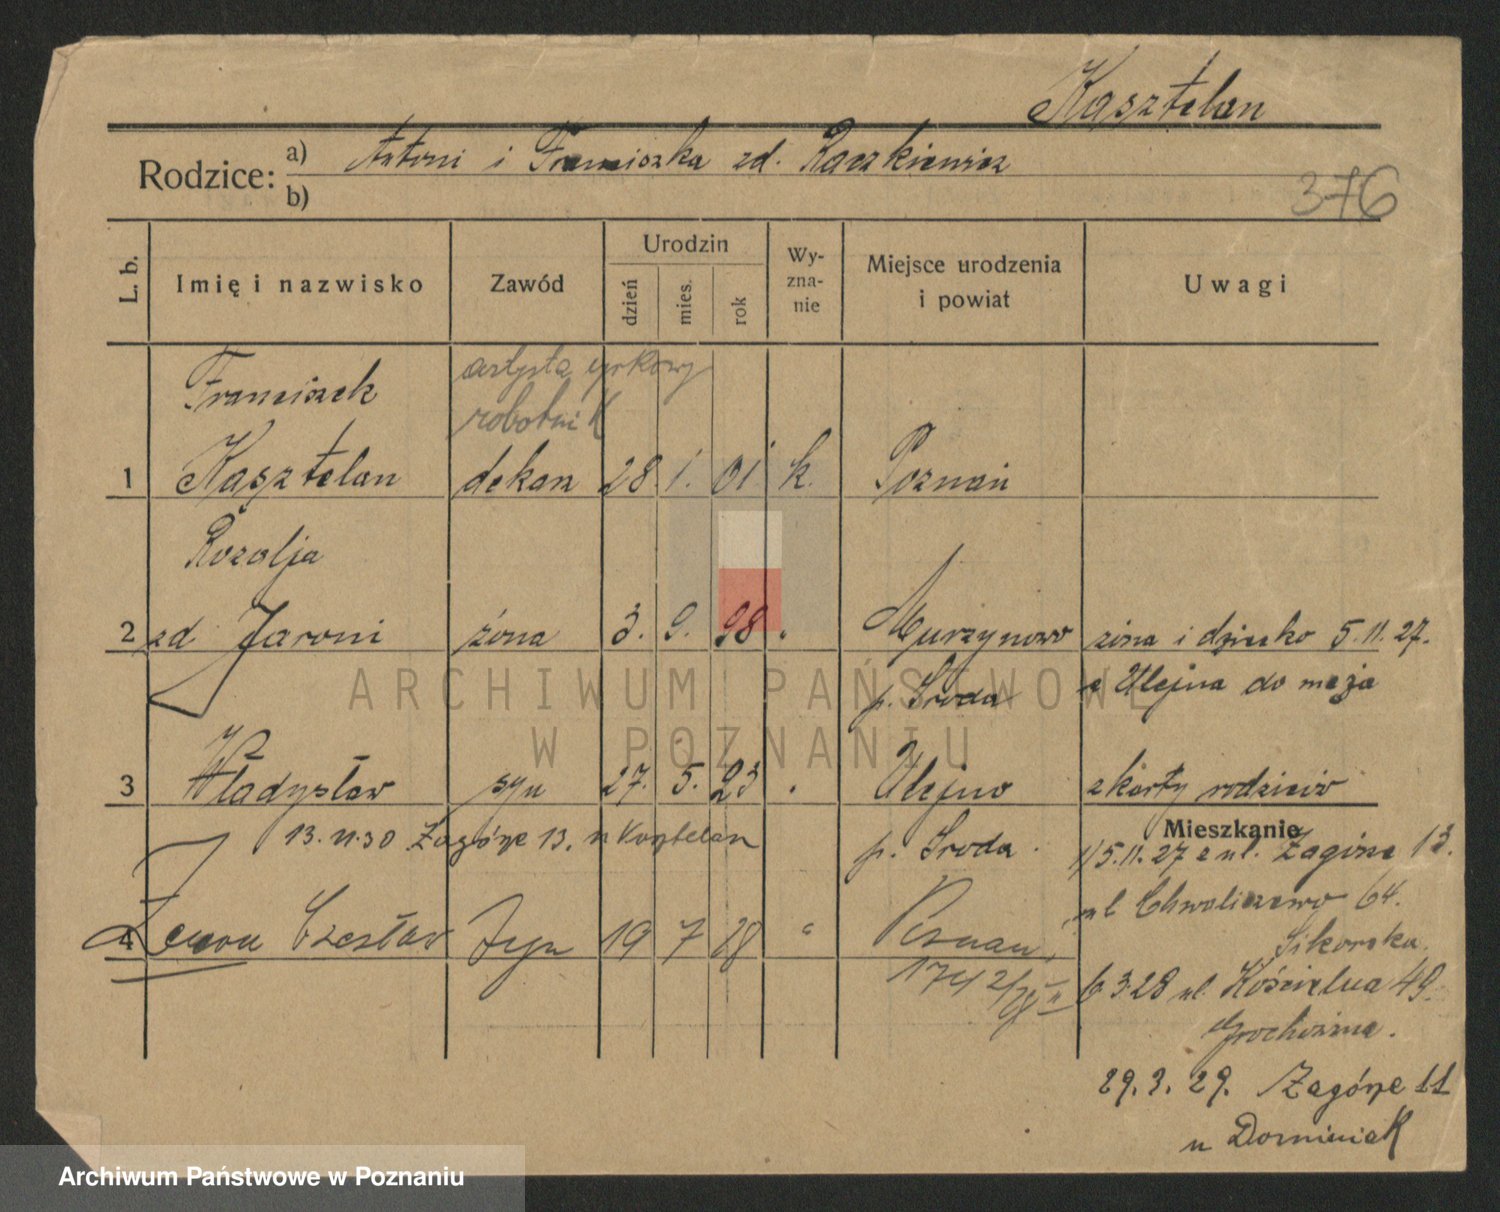 Kasztelan
Rodzice: a) Antoni i Franciszka zd. Raczkiewicz
b)
376
L. b.
Imię i nazwisko
Zawód
Urodzin
dzień
mies.
rok
Wy-
zna-
nie
Miejsce urodzenia
i powiat
Uwagi
artysta cyrkowy
Franciszek
robotnik
1 Kasztelan dekarz 28. 1. 01 k. Poznań
Rozalja
2 zd Jaroni żona 3. 9. 98 " Murzynowo żona i dziecko 5.11.27.
p. Środa z Ulejna do męża
3 Władysław syn 27. 5. 23 " Ulejno z karty rodziców
Mieszkanie
13.11.30 Zagórze 13. u Kasztelan p. Środa 1/5.11.27 z ul. Zagórze 13.
ul Chwaliszewo 64.
4 Zenon Czesław syn 19 7 28 " Poznań Sikorska.
1742/28 II 6 3 28 ul. Kościelna 49.
29.3.29. Zagórze 11
u Dominiak
ARCHIWUM PAŃSTWOWE
W POZNANIU
Archiwum Państwowe w Poznaniu